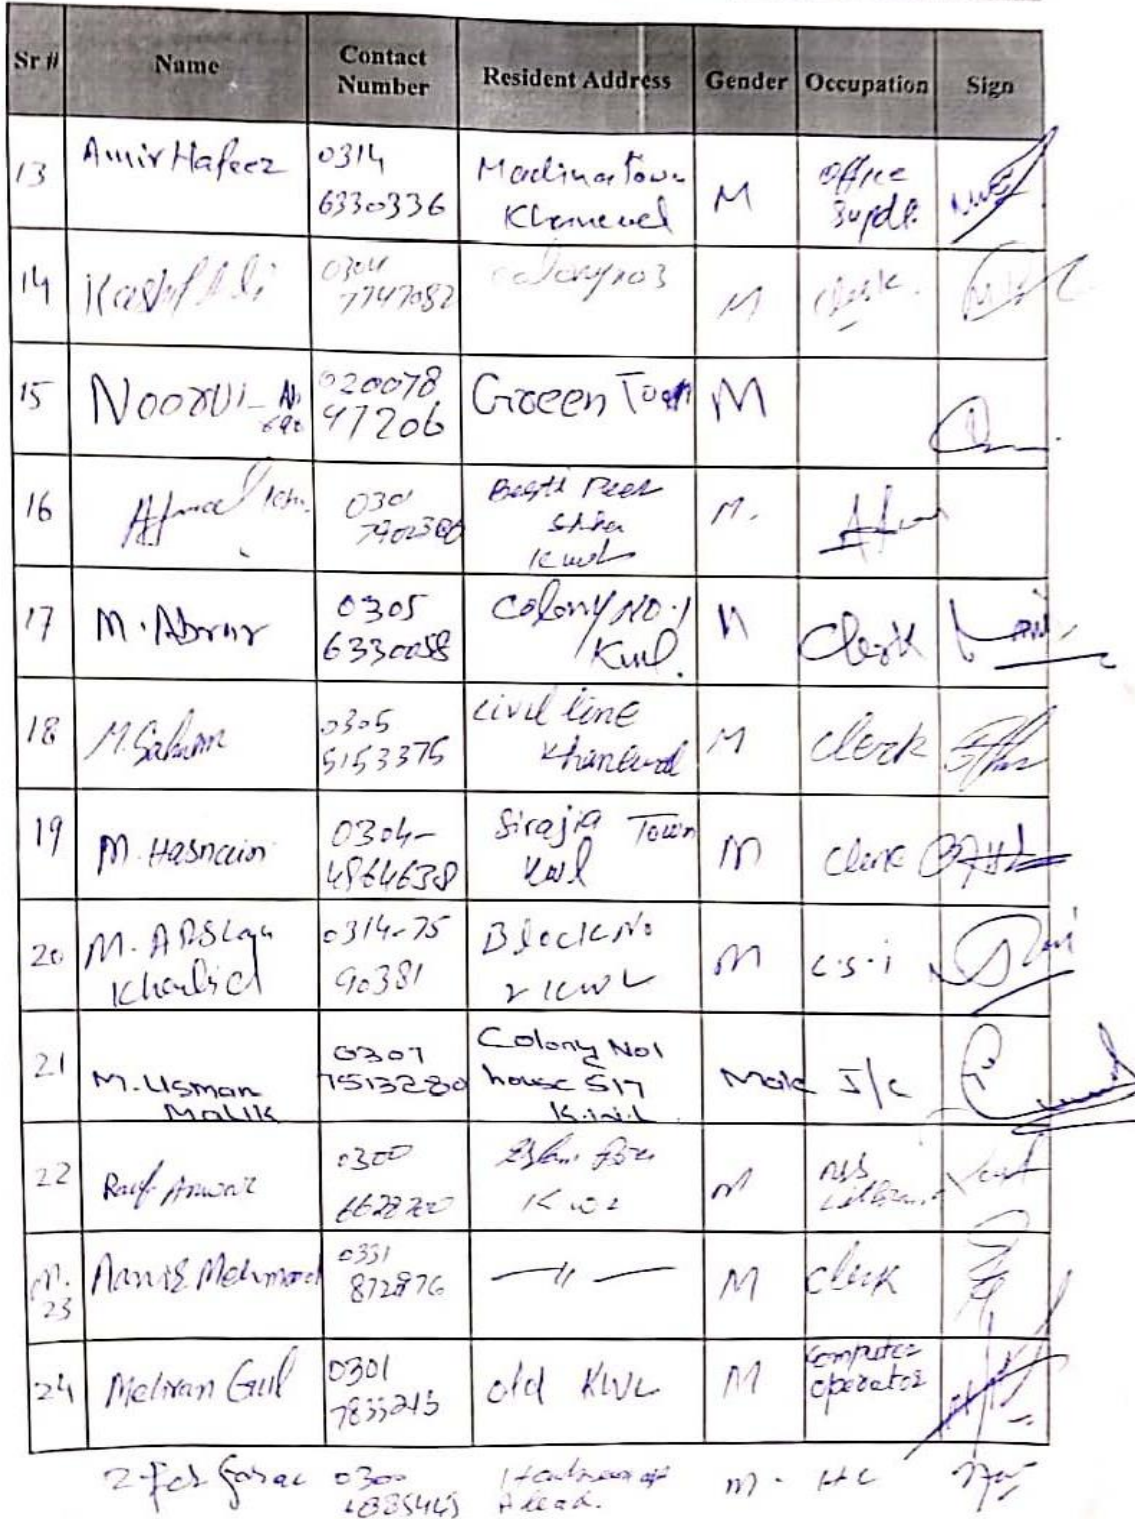 Sr # Name Contact Number Resident Address Gender Occupation Sign
13 Amir Hafeez 0314 6330336 Madina Town Khanewal M Office Supdt.
14 Kashif Ali 0304 7747087 colony no 3 M clerk.
15 Noorul- 020078 47206 Green Town M
16 0301 Basti Peer KWL M.
17 M. Abrar 0305 6330058 Colony NO.1 Kwl. M Clerk
18 M. Salman 0305 5153375 Civil line Khanewal M Clerk
19 M. Hasnain 0304- 4864638 Sirajia Town Kwl M Clerk
20 M. ARSLan Khalid 0314-75 90381 Block No 2 KWL M C.S.i
21 M. Usman MALIK 0307 7513280 Colony No1 house 517 K.W.L Male J/c
22 Rauf Anwar 0300 KWL M
M. 23 Mehmood 0331 872876 —〃— M Clerk
24 Mehran Gul 0301 7833215 old KWL M Computer operator
0300 M - HC